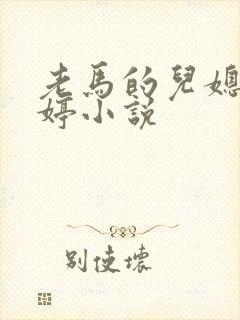 老馬的兒媳
婷小說
別使壞